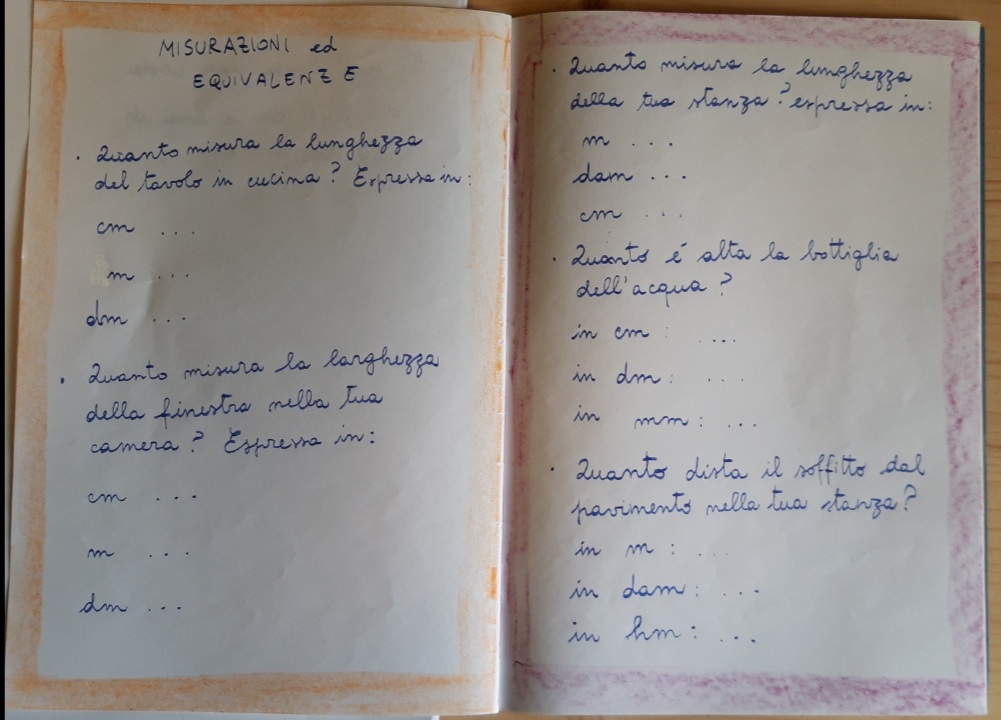 MISURAZIONI ed
EQUIVALENZE
. Quanto misura la lunghezza
del tavolo in cucina? Espressa in:
cm ...
m ...
dm ...
. Quanto misura la larghezza
della finestra nella tua
camera? Espressa in:
cm ...
m ...
dm ...
. Quanto misura la lunghezza
della tua stanza? espressa in:
m ...
dam ...
cm ...
. Quanto é alta la bottiglia
dell'acqua?
in cm: ....
in dm: ...
in mm: ...
. Quanto dista il soffitto dal
pavimento nella tua stanza?
in m: ...
in dam: ...
in hm: ...